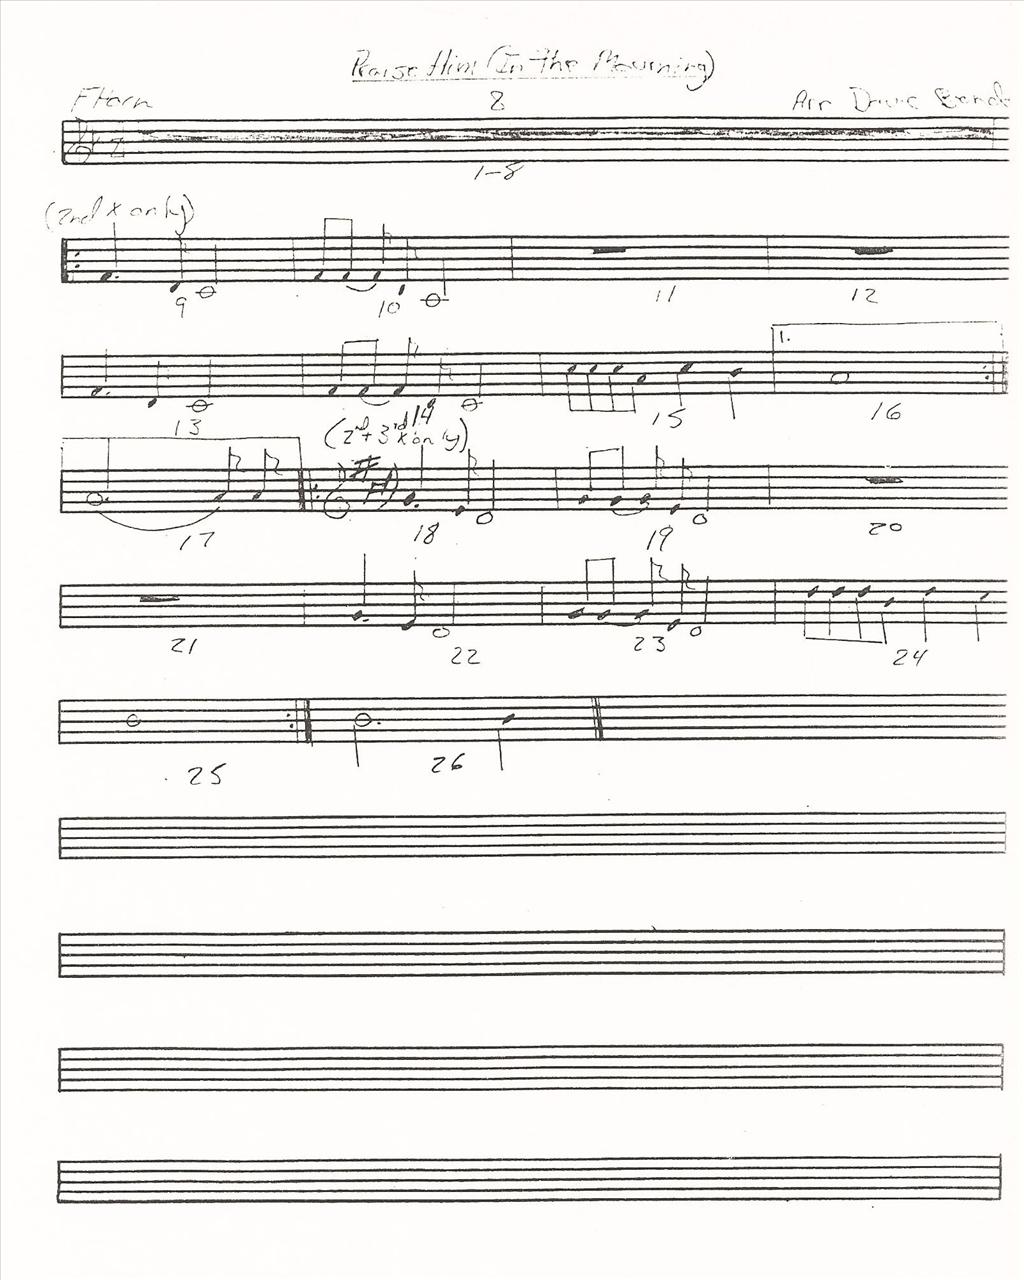 Praise Him (In The Mourning)
F Horn 8 Air Drive
1-8
(2nd x only)
9 10 11 12
1.
13 14 15 16
(2nd + 3rd x only)
17 18 19 20
21 22 23 24
25 26